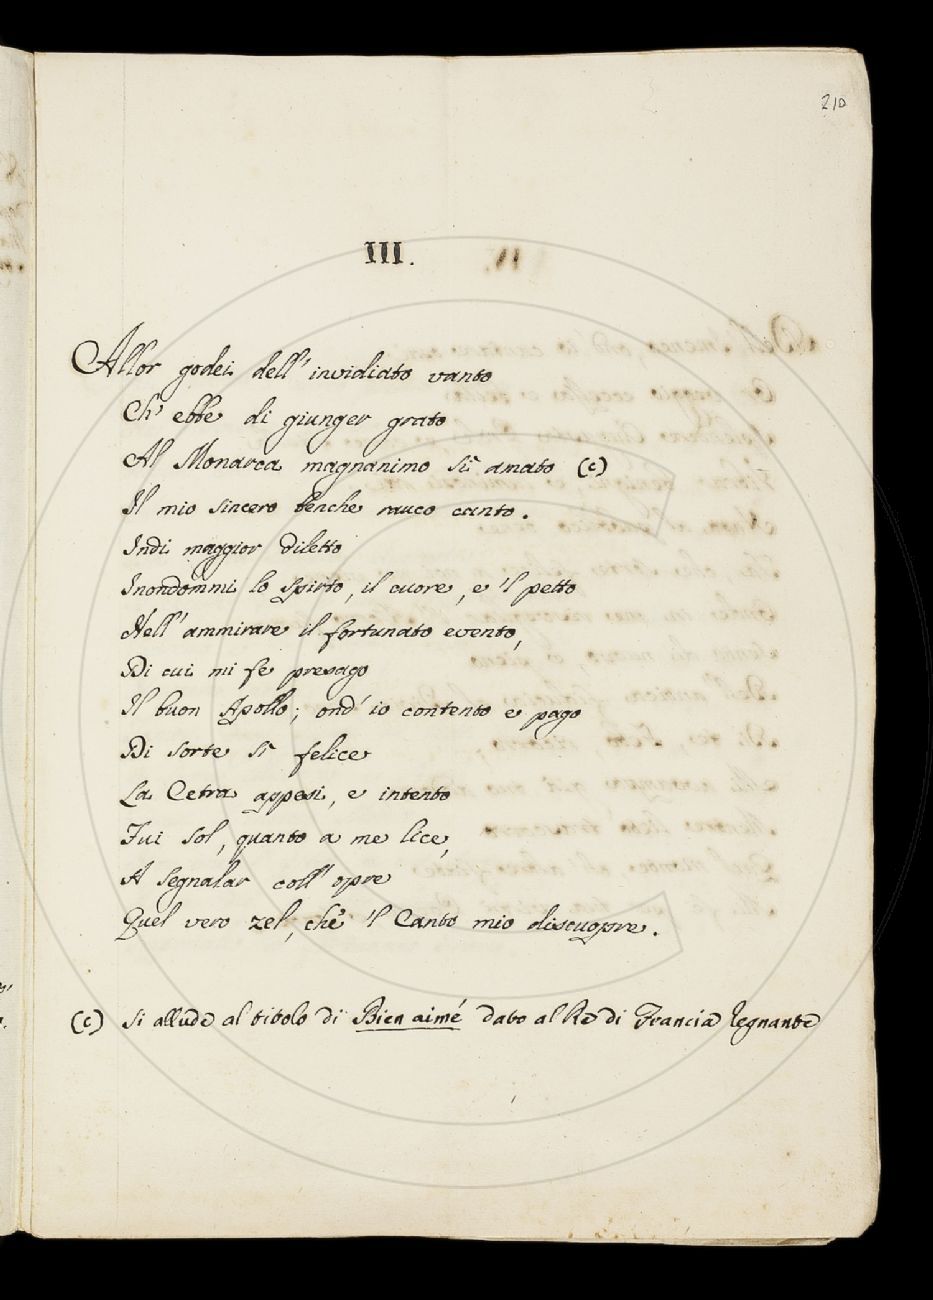 210
III.
Allor godei dell' invidiato vanto
Ch' ebbe di giunger grato
Al Monarca magnanimo sì amato (c)
Il mio sincero benche rauco canto.
Indi maggior diletto
Inondommi lo spirto, il cuore, e 'l petto
Nell' ammirare il fortunato evento,
Di cui mi fe presago
Il buon Apollo; ond' io contento e pago
Di sorte sì felice
La Cetra appesi, e intento
Fui sol, quanto a me lice,
A segnalar coll' opre
Quel vero zel, che 'l Canto mio discuopre.
(c) Si allude al titolo di Bien aimé dato al Re di Francia regnante